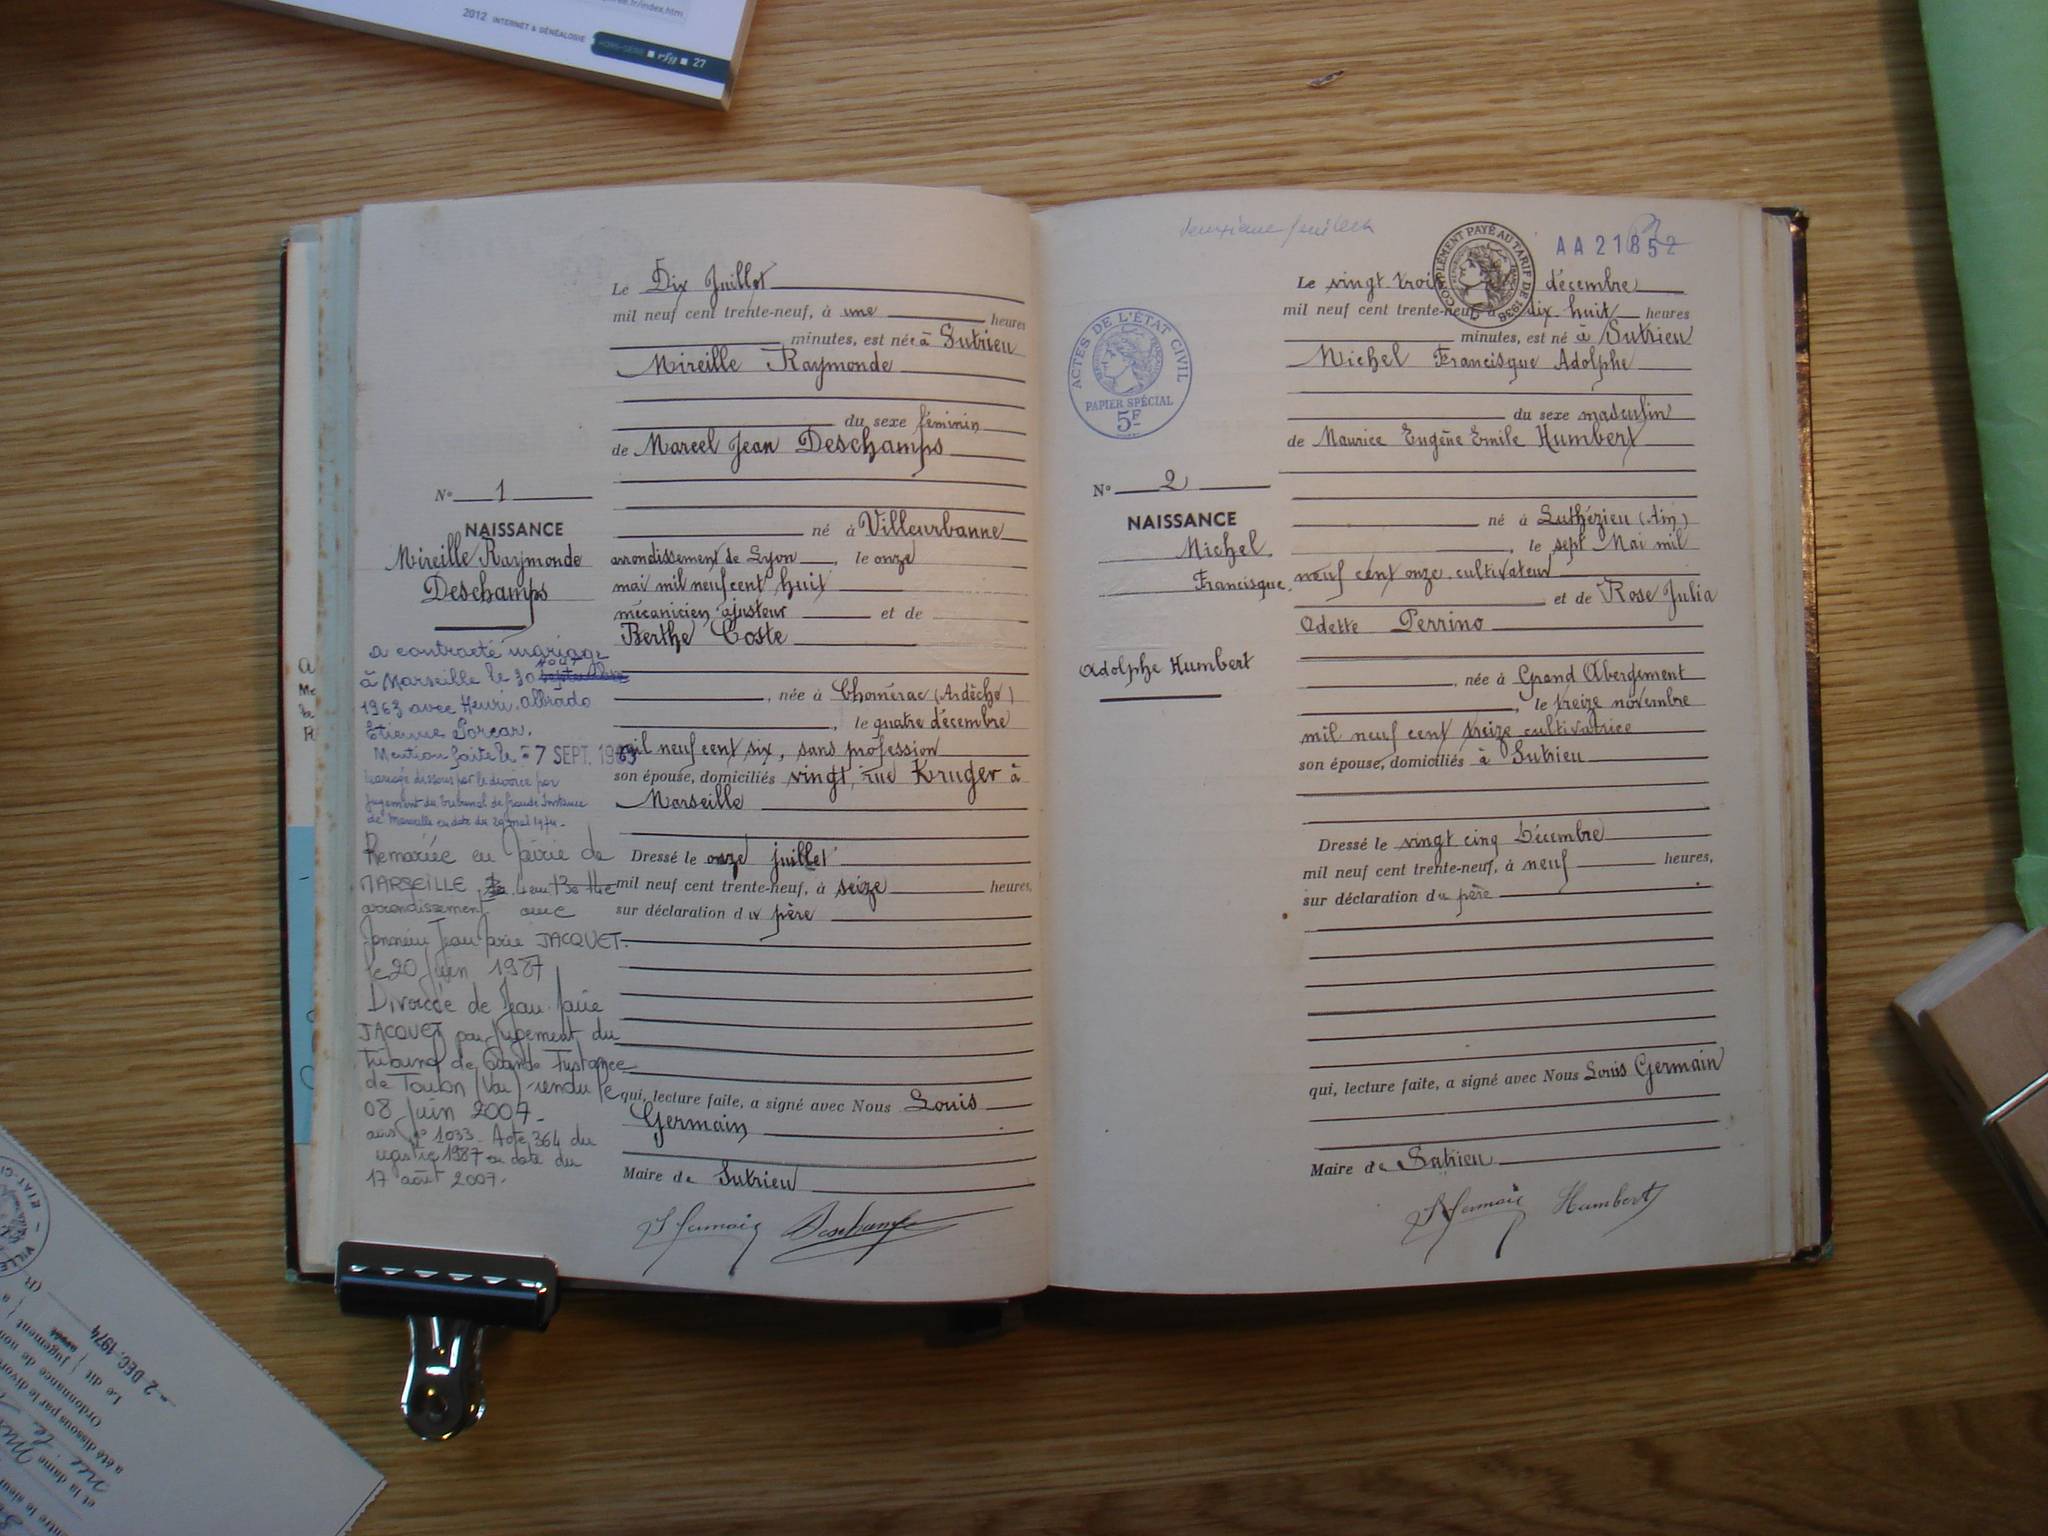 index.htm
2012 INTERNET & GÉNÉALOGIE
HORS-SÉRIE rfg 27
Le Dix Juillet
mil neuf cent trente-neuf, à une heures
minutes, est née à Sutrieu
Mireille Raymonde
du sexe féminin
de Marcel Jean Deschamps
N° 1
NAISSANCE
Mireille Raymonde
Deschamps
né à Villeurbanne
arrondissement de Lyon, le onze
mai mil neuf cent huit
mécanicien ajusteur et de
Berthe Coste
née à Chomérac (Ardèche)
, le quatre décembre
mil neuf cent six, sans profession
son épouse, domiciliés vingt, rue Kruger à
Marseille
Dressé le onze juillet
mil neuf cent trente-neuf, à seize heures,
sur déclaration du père
qui, lecture faite, a signé avec Nous Louis
Germain
Maire de Sutrieu
L Germain Deschamps
a contracté mariage
août
à Marseille le 30 septembre
1963 avec Henri
Etienne Porcar.
Mention faite le - 7 SEPT. 1963
Mariage dissous par le divorce par
jugement du Tribunal de Grande Instance
de Marseille en date du 29 mai 1974.
Remariée en Mairie de
MARSEILLE
arrondissement avec
Monsieur Jean Marie JACQUET.
le 20 Juin 1987
Divorcée de Jean Marie
JACQUET par Jugement du
Tribunal de Grande Instance
de Toulon (Var) rendu le
08 Juin 2007.
avis n° 1033. Acte 364 du
registre 1987 en date du
17 août 2007.
deuxième feuillet
COMPLÉMENT PAYÉ AU TARIF DE 1938
AA 21852
ACTES DE L'ÉTAT CIVIL
PAPIER SPÉCIAL
5F
Le vingt trois décembre
mil neuf cent trente-neuf, à dix huit heures
minutes, est né à Sutrieu
Michel Francisque Adolphe
du sexe masculin
de Maurice Eugène Emile Humbert
N° 2
NAISSANCE
Michel
Francisque
Adolphe Humbert
né à Luthézieu (Ain)
, le sept Mai mil
neuf cent onze cultivateur
et de Rose Julia
Odette Perrino
, née à Grand Abergement
, le treize novembre
mil neuf cent treize cultivatrice
son épouse, domiciliés à Sutrieu
Dressé le vingt cinq Décembre
mil neuf cent trente-neuf, à neuf heures,
sur déclaration du père
qui, lecture faite, a signé avec Nous Louis Germain
Maire de Sutrieu
L Germain Humbert
ETAT-CI
VILLE
- 2 DEC. 1974
Le dit jugement
Ordonnance de non
a été dissous par le divor
et la dame